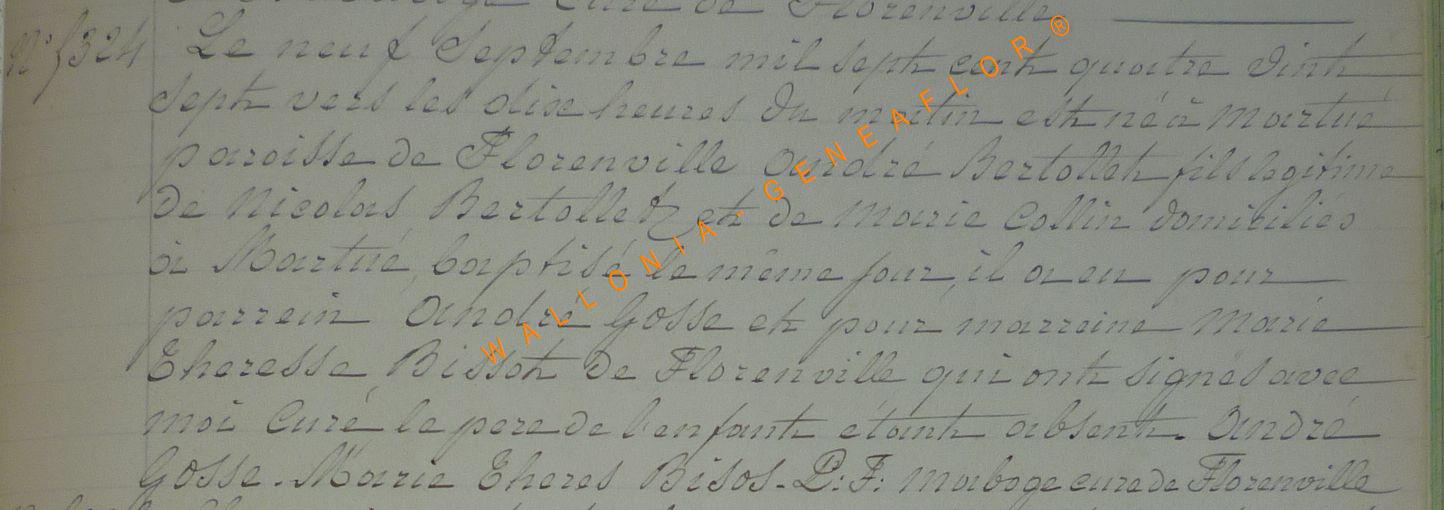 curé de Florenville
N° 324 Le neuf Septembre mil sept cent quatre vint
sept vers les dix heures du matin est né à Martué
paroisse de Florenville André Bertollet fils legitime
de Nicolas Bertollet et de Marie Collin domiciliés
à Martué, baptisé le même jour, il a eu pour
parrein André Gosse et pour marreine Marie
Theresse Bissot de Florenville qui ont signés avec
moi Curé le pere de l'enfant étant absent. André
Gosse. Marie Theres Bisos. P: F: Maboge cure de Florenville
WALLONIA - GENEAFLOR ®